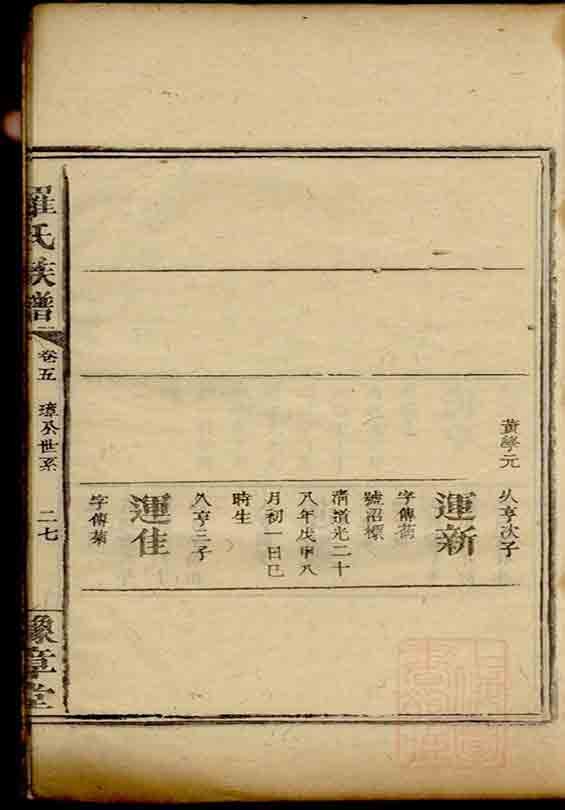 黃學元
久亨次子
運新
字傳蘭
號沼標
清道光二十
八年戊申八
月初一日巳
時生
久亨三子
運佳
字傳菊
羅氏族譜
卷五
璋公世系
二七
豫章堂